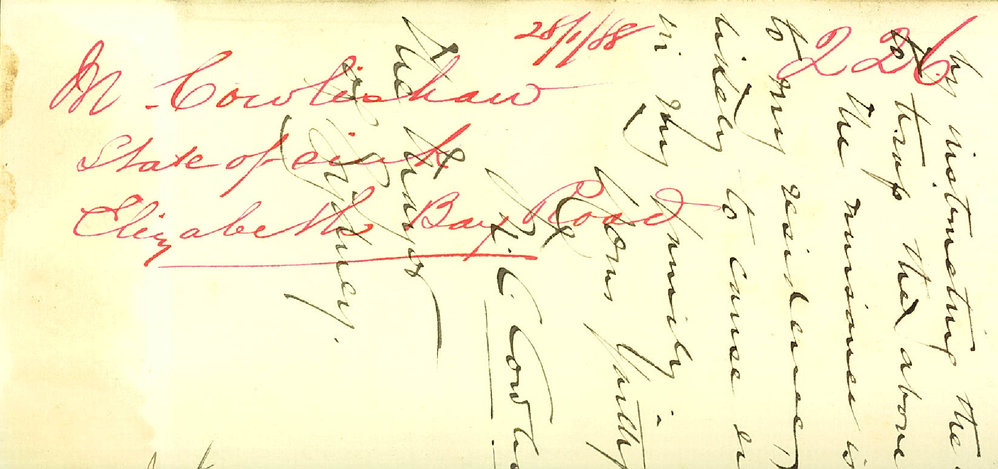 28/1/88
226
M. Cowlishaw
State of sink
Elizabeth Bay Road
by instructing the
to trap the above
the nuisance is
to my residence,
likely to cause
in my family
Yours faith
M. C. Cowli
The Mayor
of Sydney.